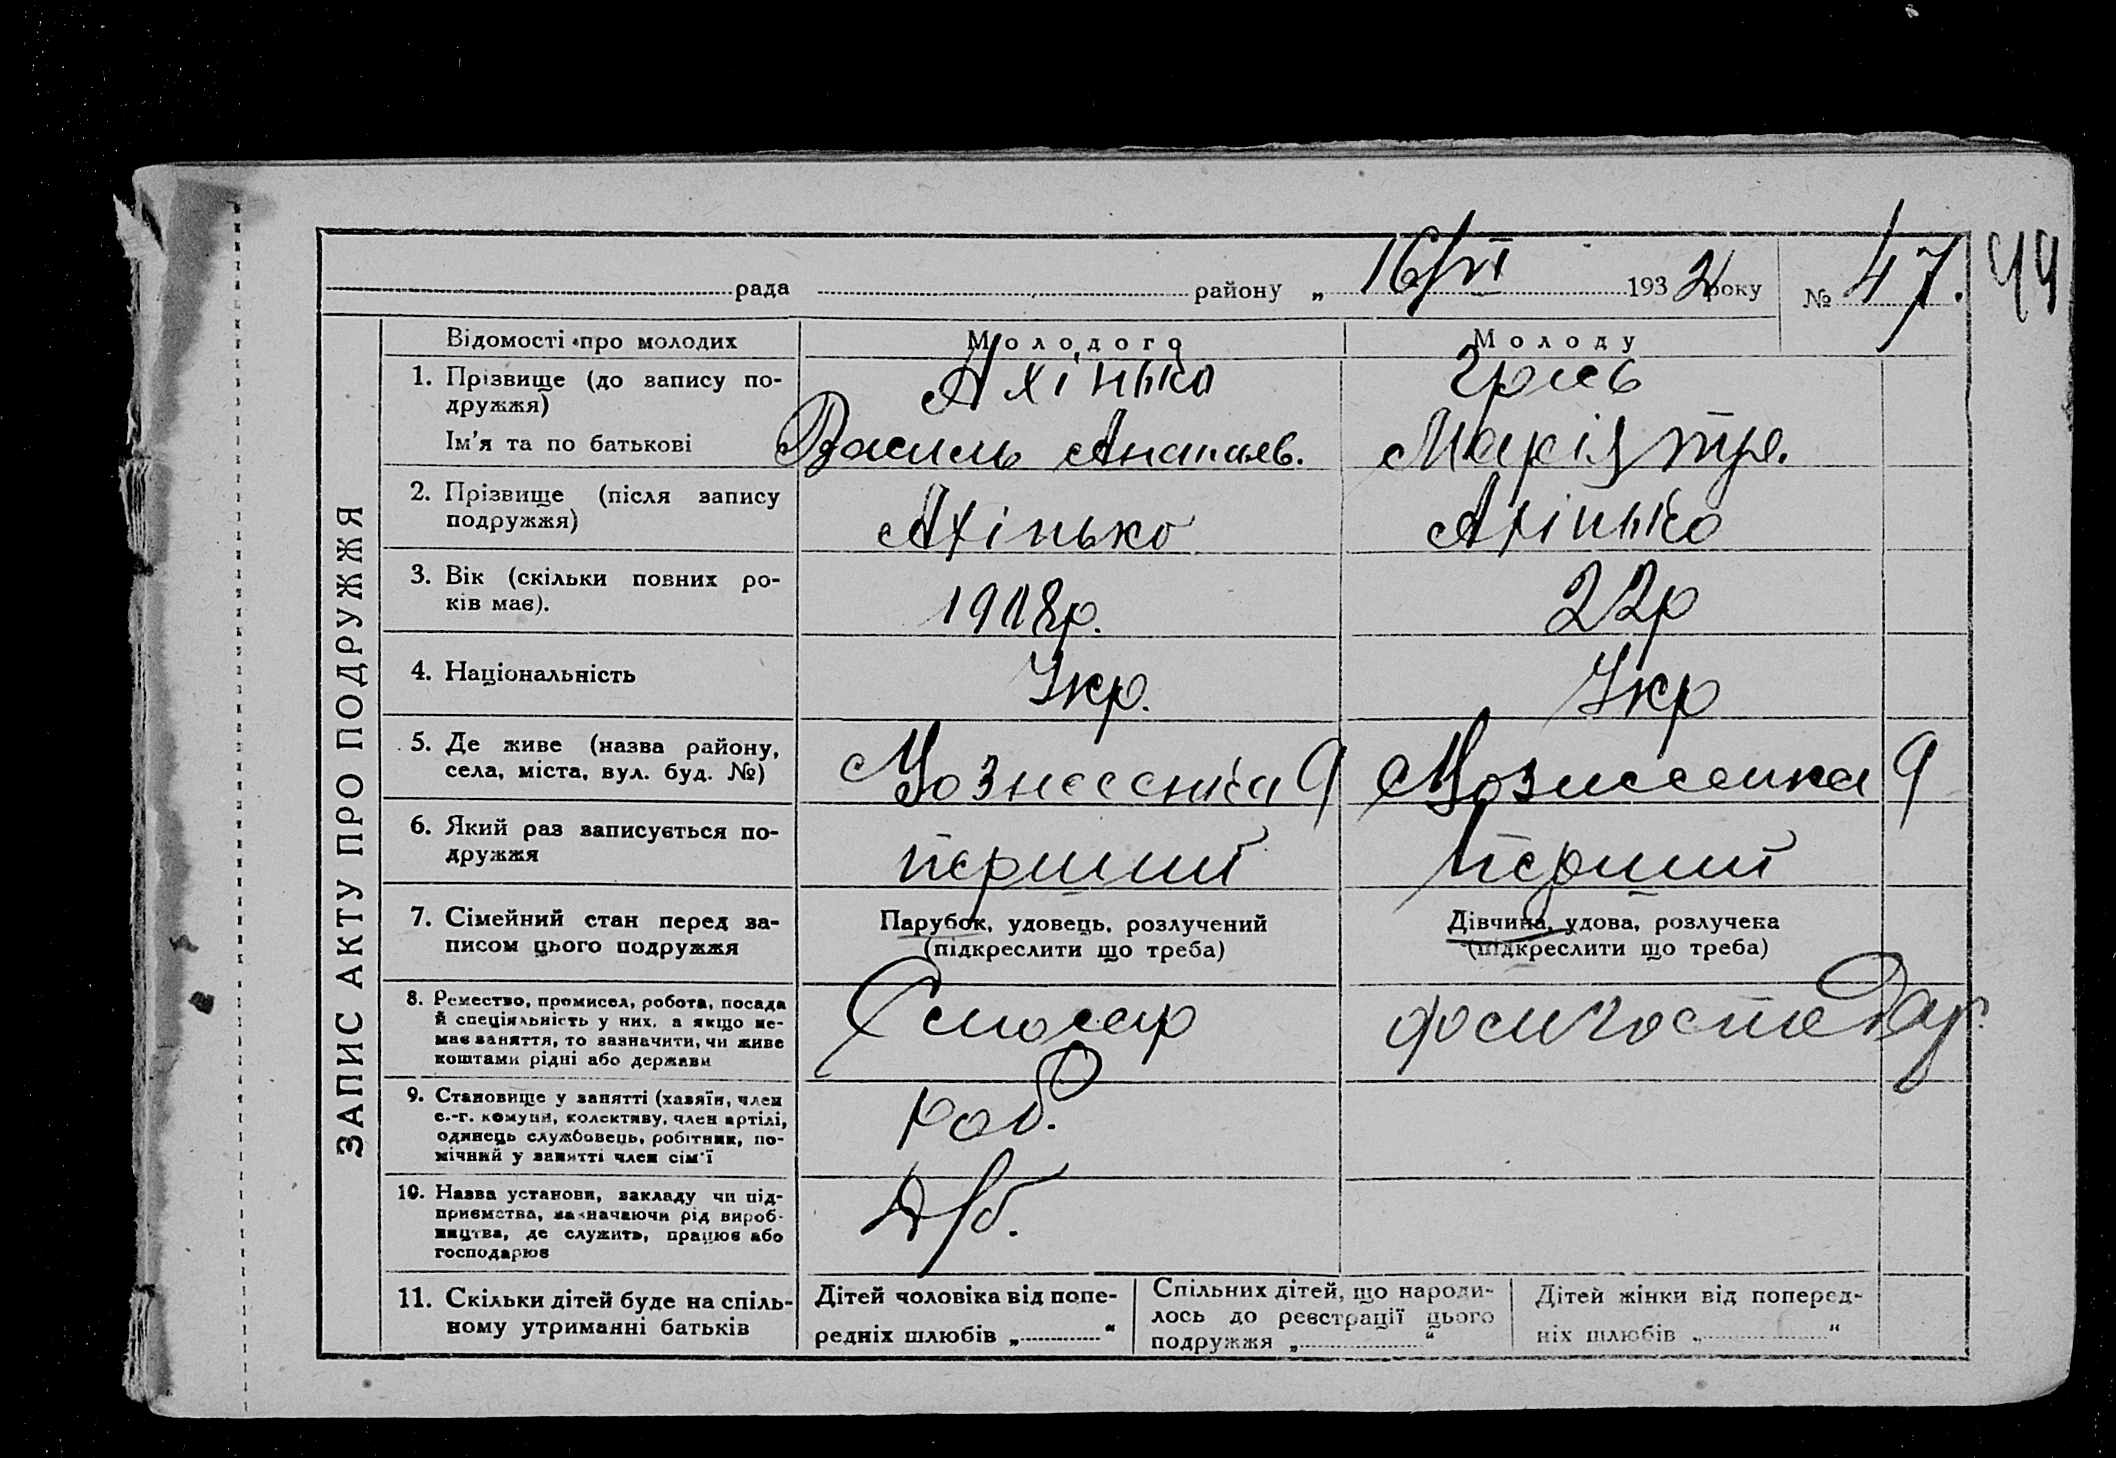 рада району „ 16/VI 1932 року № 47. 44
ЗАПИС АКТУ ПРО ПОДРУЖЖЯ
Відомості про молодих Молодого Молоду
1. Прізвище (до запису по- Ахінько
дружжя)
Ім'я та по батькові Василь Анатаєв. Марія
2. Прізвище (після запису Ахінько Ахінько
подружжя)
3. Вік (скільки повних ро- 1908р. 22р
ків має).
4. Національність Укр. Укр
5. Де живе (назва району, Вознесенка 9 Вознесенка 9
села, міста, вул. буд. №)
6. Який раз записується по- перший перший
дружжя
7. Сімейний стан перед за- Парубок, удовець, розлучений Дівчина, удова, розлучена
писом цього подружжя (підкреслити що треба) (підкреслити що треба)
8. Ремество, промисел, робота, посада Слюсар домгосподар.
й спеціяльність у них, а якщо не-
має заняття, то зазначити, чи живе
коштами рідні або держави
9. Становище у занятті (хазяїн, член роб.
с.-г. комуни, колективу, член артілі,
одинець службовець, робітник, по-
мічний у занятті член сім'ї
10. Назва установи, закладу чи під-
приємства, зазначаючи рід вироб-
ництва, де служить, працює або
господарює
11. Скільки дітей буде на спіль- Дітей чоловіка від попе- Спільних дітей, що народи- Дітей жінки від поперед-
ному утриманні батьків редніх шлюбів „ “ лось до реєстрації цього ніх шлюбів „ “
подружжя „ “